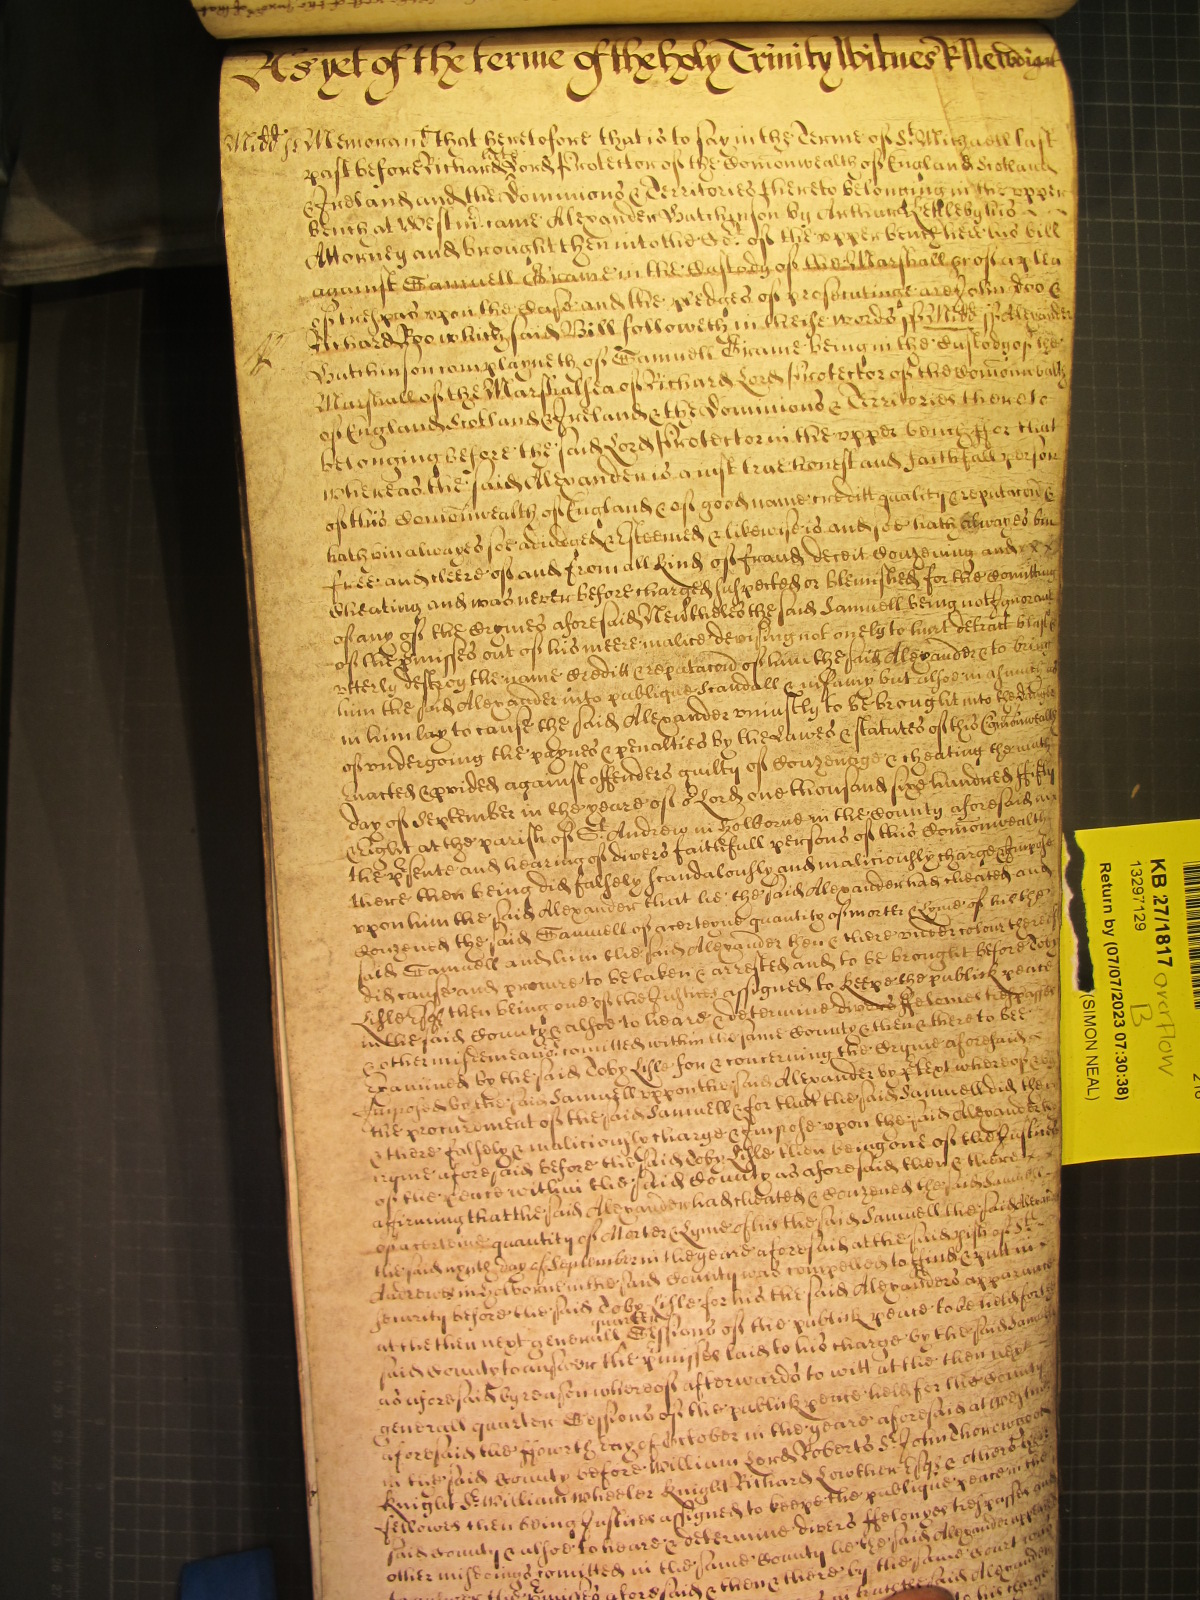 As yet of the terme of the holy Trinity Witnes R Newdigat
Midd ss Memorand That heretofore that is to say in the Terme of St Michaell last
past before Richard late Lord Protector of the Comonwealth of England Scotland
& Ireland and the Dominions & Territories thereto belonging in the upper
bench at Westm came Alexander Hutchinson by Arthur Kettleby his
Attorney and brought then into the Cot of the upper bench here his bill
against Samuell Grame in the Custody of the Marshall &c of a plea
of trespas upon the Case and the pledges of prosecutinge are John Doo &
Richard Roo which said Bill followeth in theise words ss Midd ss Alexander
Hutchinson complayneth of Samuell Grame being in the Custody of the
Marshall of the Marshalsea of Richard Lord Protector of the Comonwealth
of England Scotland & Ireland & the Dominions & Territories thereto
belonging before the said Lord Protector in the upper bench For that
whereas the said Alexander is a just true honest and faithfull person
of this Comonwealth of England & of good name creditt quality & reputacon &
hath bin alwayes soe adiudged & Esteemed & likewise is and soe hath alwayes bin
free and cleere of and from all kind of fraud deceit Couzening and
Cheating and was never before charged suspected or blemished for the Comitting
of any of the Crymes aforesaid Nevertheles the said Samuell being not Ignorant
of the pmisses out of his meere malice devising not onely to hurt detract blast &
utterly destroy the name Creditt & reputacon of him the said Alexander & to bring
him the said Alexander into publique Scandall & infamy but alsoe in asmuch as
in him lay to cause the said Alexander uniustly to be brought into the danger
of undergoing the paynes & penalties by the Lawes & Statutes of this Comonwealth
enacted & pvided against offenders guilty of Couzenage & cheating the ninth
day of September in the yeare of or Lord one thousand sixe hundred fifty
& eight at the parish of St Andrew in Holborne in the County aforesaid in
the psence and hearing of divers faithfull persons of this Comonwealth
there then being did falsely scandalously and maliciously charge & Impose
upon him the said Alexander that hee the said Alexander had cheated and
Couzened the said Samuell of a certeyne quantity of morter & Lyme of his the
said Samuell and him the said Alexander then & there under colour thereof
did cause and procure to be taken & arrested and to be brought before Toby
Lisle Esqr then being one of the Justices assigned to keepe the publick peace
in the said County & alsoe to heare & determine divers Felonies trespasses
& other misdemeanors comitted within the same County & then & there to bee
examined by the said Toby Lisle for & concerning the Cryme aforesaid
Imposed by the said Samuell uppon the said Alexander by ptext whereof &
the procurement of the said Samuell & for that the said Samuell did then
& there falsely & maliciously charge & Impose upon the said Alexander the
cryme aforesaid before the said Toby Lisle then being one of the Justices
of the peace within the said County as aforesaid then & there
affirming that the said Alexander had cheated & Couzened the said Samuell
of a certeine quantity of Morter & Lyme of his the said Samuell the said Alexander
the said nynth day of September in the yeare aforesaid at the said pish of St
Andrewes in Holborne in the said County was compelled to find & putt in
security before the said Toby Lisle for his the said Alexanders apparance
at the then next generall quarter Sessions of the publick peace to be held for the
said County to answere the pmisses laid to his charge by the said Samuell
as aforesaid by reason whereof afterwards to witt at the then next
generall quarter Sessions of the publick peace held for the County
aforesaid the fowrth day of October in the yeare aforesaid at
in the said County before William Lord Roberts Sr John Thorowgood
Knight Sr William Wheeler Knight Richard Lowther Esqr & others their
fellowes then being Justices assigned to keepe the publique peace in the
said County & alsoe to heare & determine divers Felonyes trespasses and
other misdemeanors comitted in the same County hee the said Alexander
the pmisses aforesaid & then & there by the same Court
the said Alexander
KB 27/1817 overflow
B
13297129
Return by (07/07/2023 07:30:38)
(SIMON NEAL)